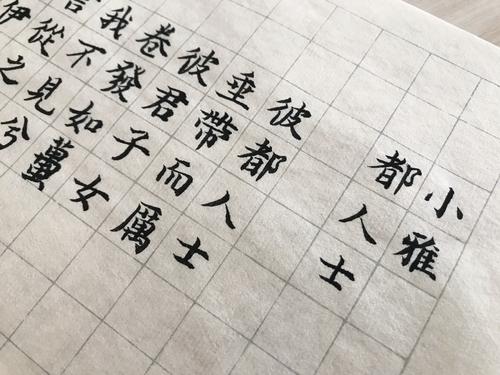 小雅
都人士
彼都人士
垂帶而厲
彼君子女
卷發如蠆
我不見兮
言從之
伊